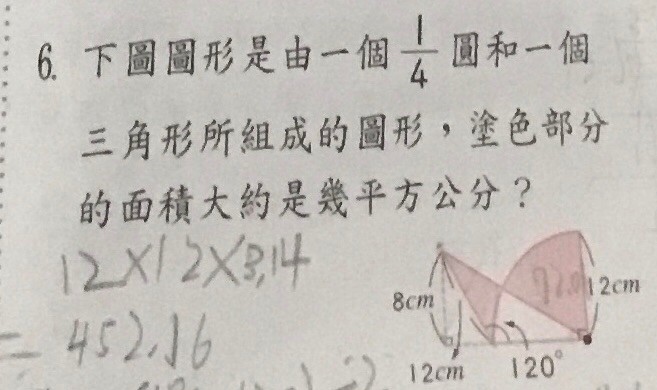 6. 下圖圖形是由一個 1/4 圓和一個
三角形所組成的圖形，塗色部分
的面積大約是幾平方公分？
12×12×3.14
= 452.16
8cm
12cm
12cm
120°